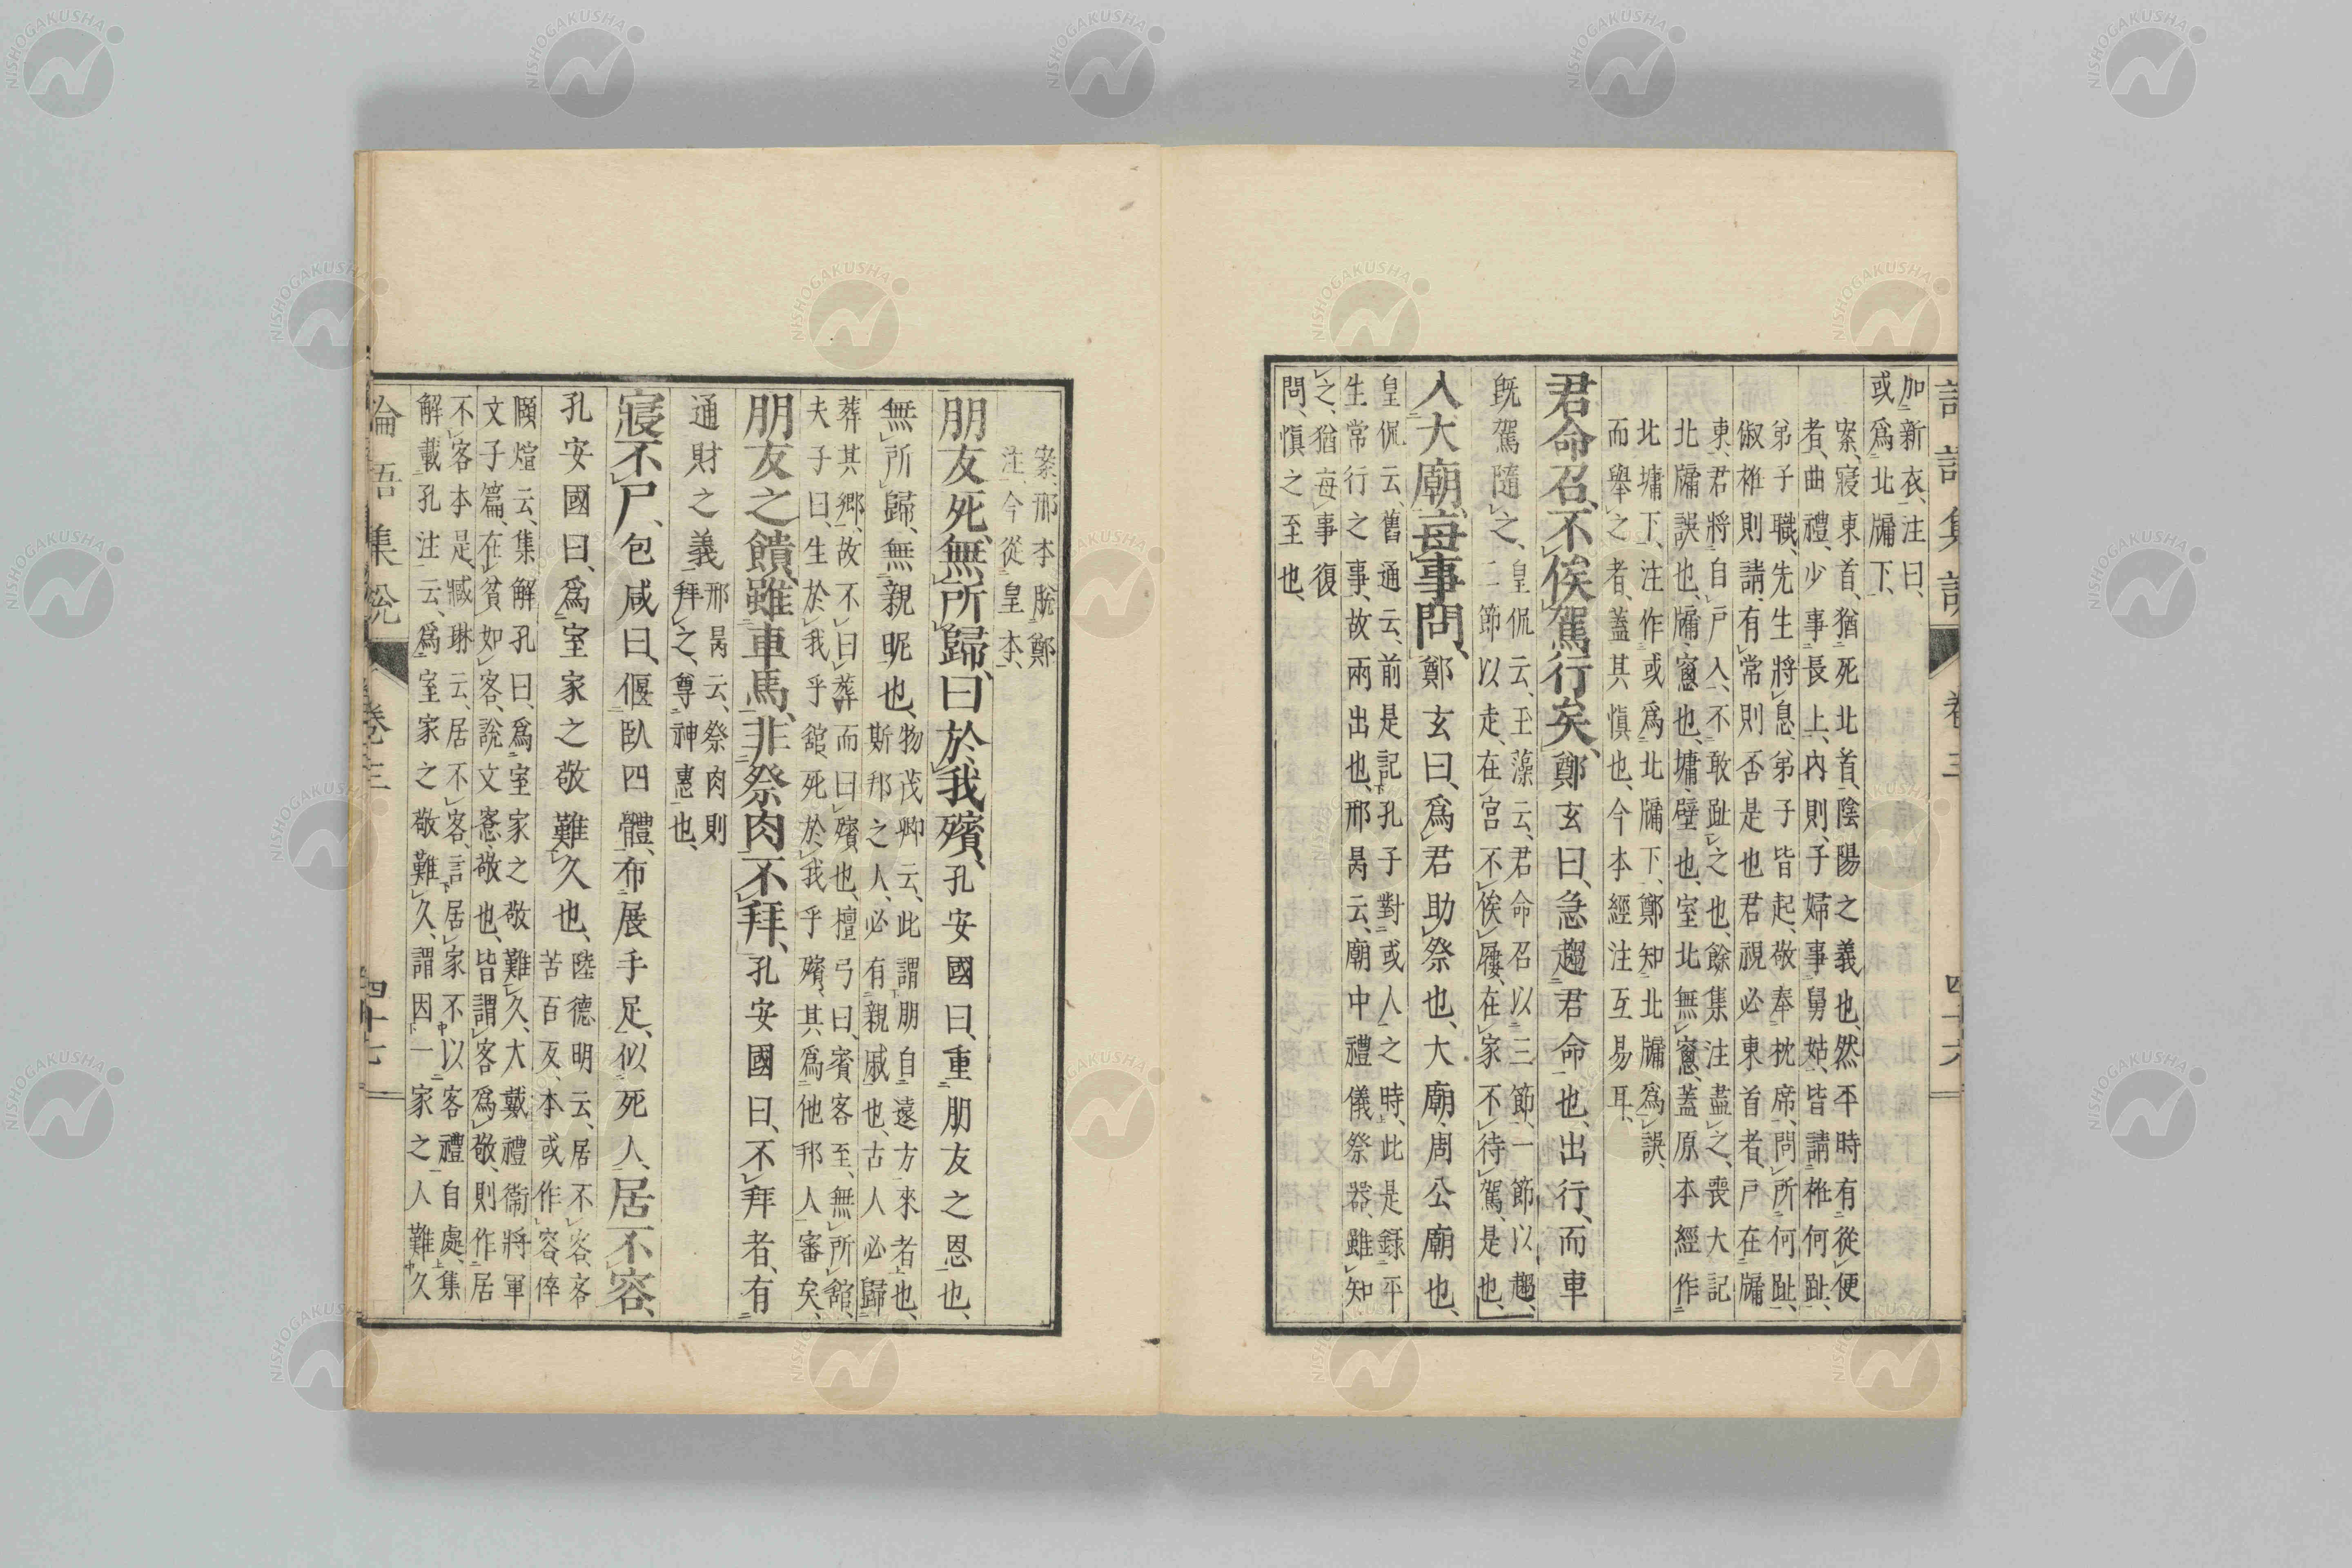 加新衣、注曰、
或爲北牖下、
案、寢東首、猶死北首、陰陽之義也、然平時有從便
者、曲禮、少事長上、內則、子婦事舅姑、皆請袵何趾、
弟子職、先生將息、弟子皆起、敬奉枕席、問所何趾、
俶袵則請、有常則否是也君視必東首者、戶在牖
東、君將自戶入、不敢趾之也、餘集注盡之、喪大記
北牖誤也、牖、窻也、墉、壁也、室北無窻、蓋原本經作
北墉下、注作或爲北牖下、鄭知北牖爲誤、
而舉之者、蓋其愼也、今本經注互易耳、
君命召、不俟駕行矣、鄭玄曰、急趨君命也、出行、而車
既駕隨之、皇侃云、玉藻云、君命召以三節、一節以趨、
二節以走、在宮不俟屨、在家不待駕、是也、
入大廟、每事問、鄭玄曰、爲君助祭也、大廟、周公廟也、
皇侃云、舊通云、前是記孔子對或人之時、此是錄平
生常行之事、故兩出也、邢昺云、廟中禮儀祭器、雖知
之、猶每事復
問、愼之至也、
案、邢本脫鄭
注、今從皇本、
朋友死、無所歸、曰於我殯、孔安國曰、重朋友之恩也、
無所歸、無親昵也、物茂卿云、此謂朋自遠方來者也、
斯邦之人、必有親戚也、古人必歸
葬其鄉、故不曰葬而曰殯也、檀弓曰、賓客至、無所館、
夫子曰、生於我乎館、死於我乎殯、其爲他邦人審矣、
朋友之饋、雖車馬、非祭肉不拜、孔安國曰、不拜者、有
通財之義、邢昺云、祭肉則
拜之、尊神惠也、
寢不尸、包咸曰、偃臥四體、布展手足、似死人、居不容、
孔安國曰、爲室家之敬難久也、陸德明云、居不客、客
苦百反、本或作容、倅
頤煊云、集解孔曰、爲室家之敬難久、大戴禮衞將軍
文子篇、在貧如客、說文愙、敬也、皆謂客爲敬、則作居
不客本是、臧琳云、居不客、言居家不以客禮自處、集
解載孔注云、爲室家之敬難久、謂因一家之人難久
論語集說 卷三 四十七